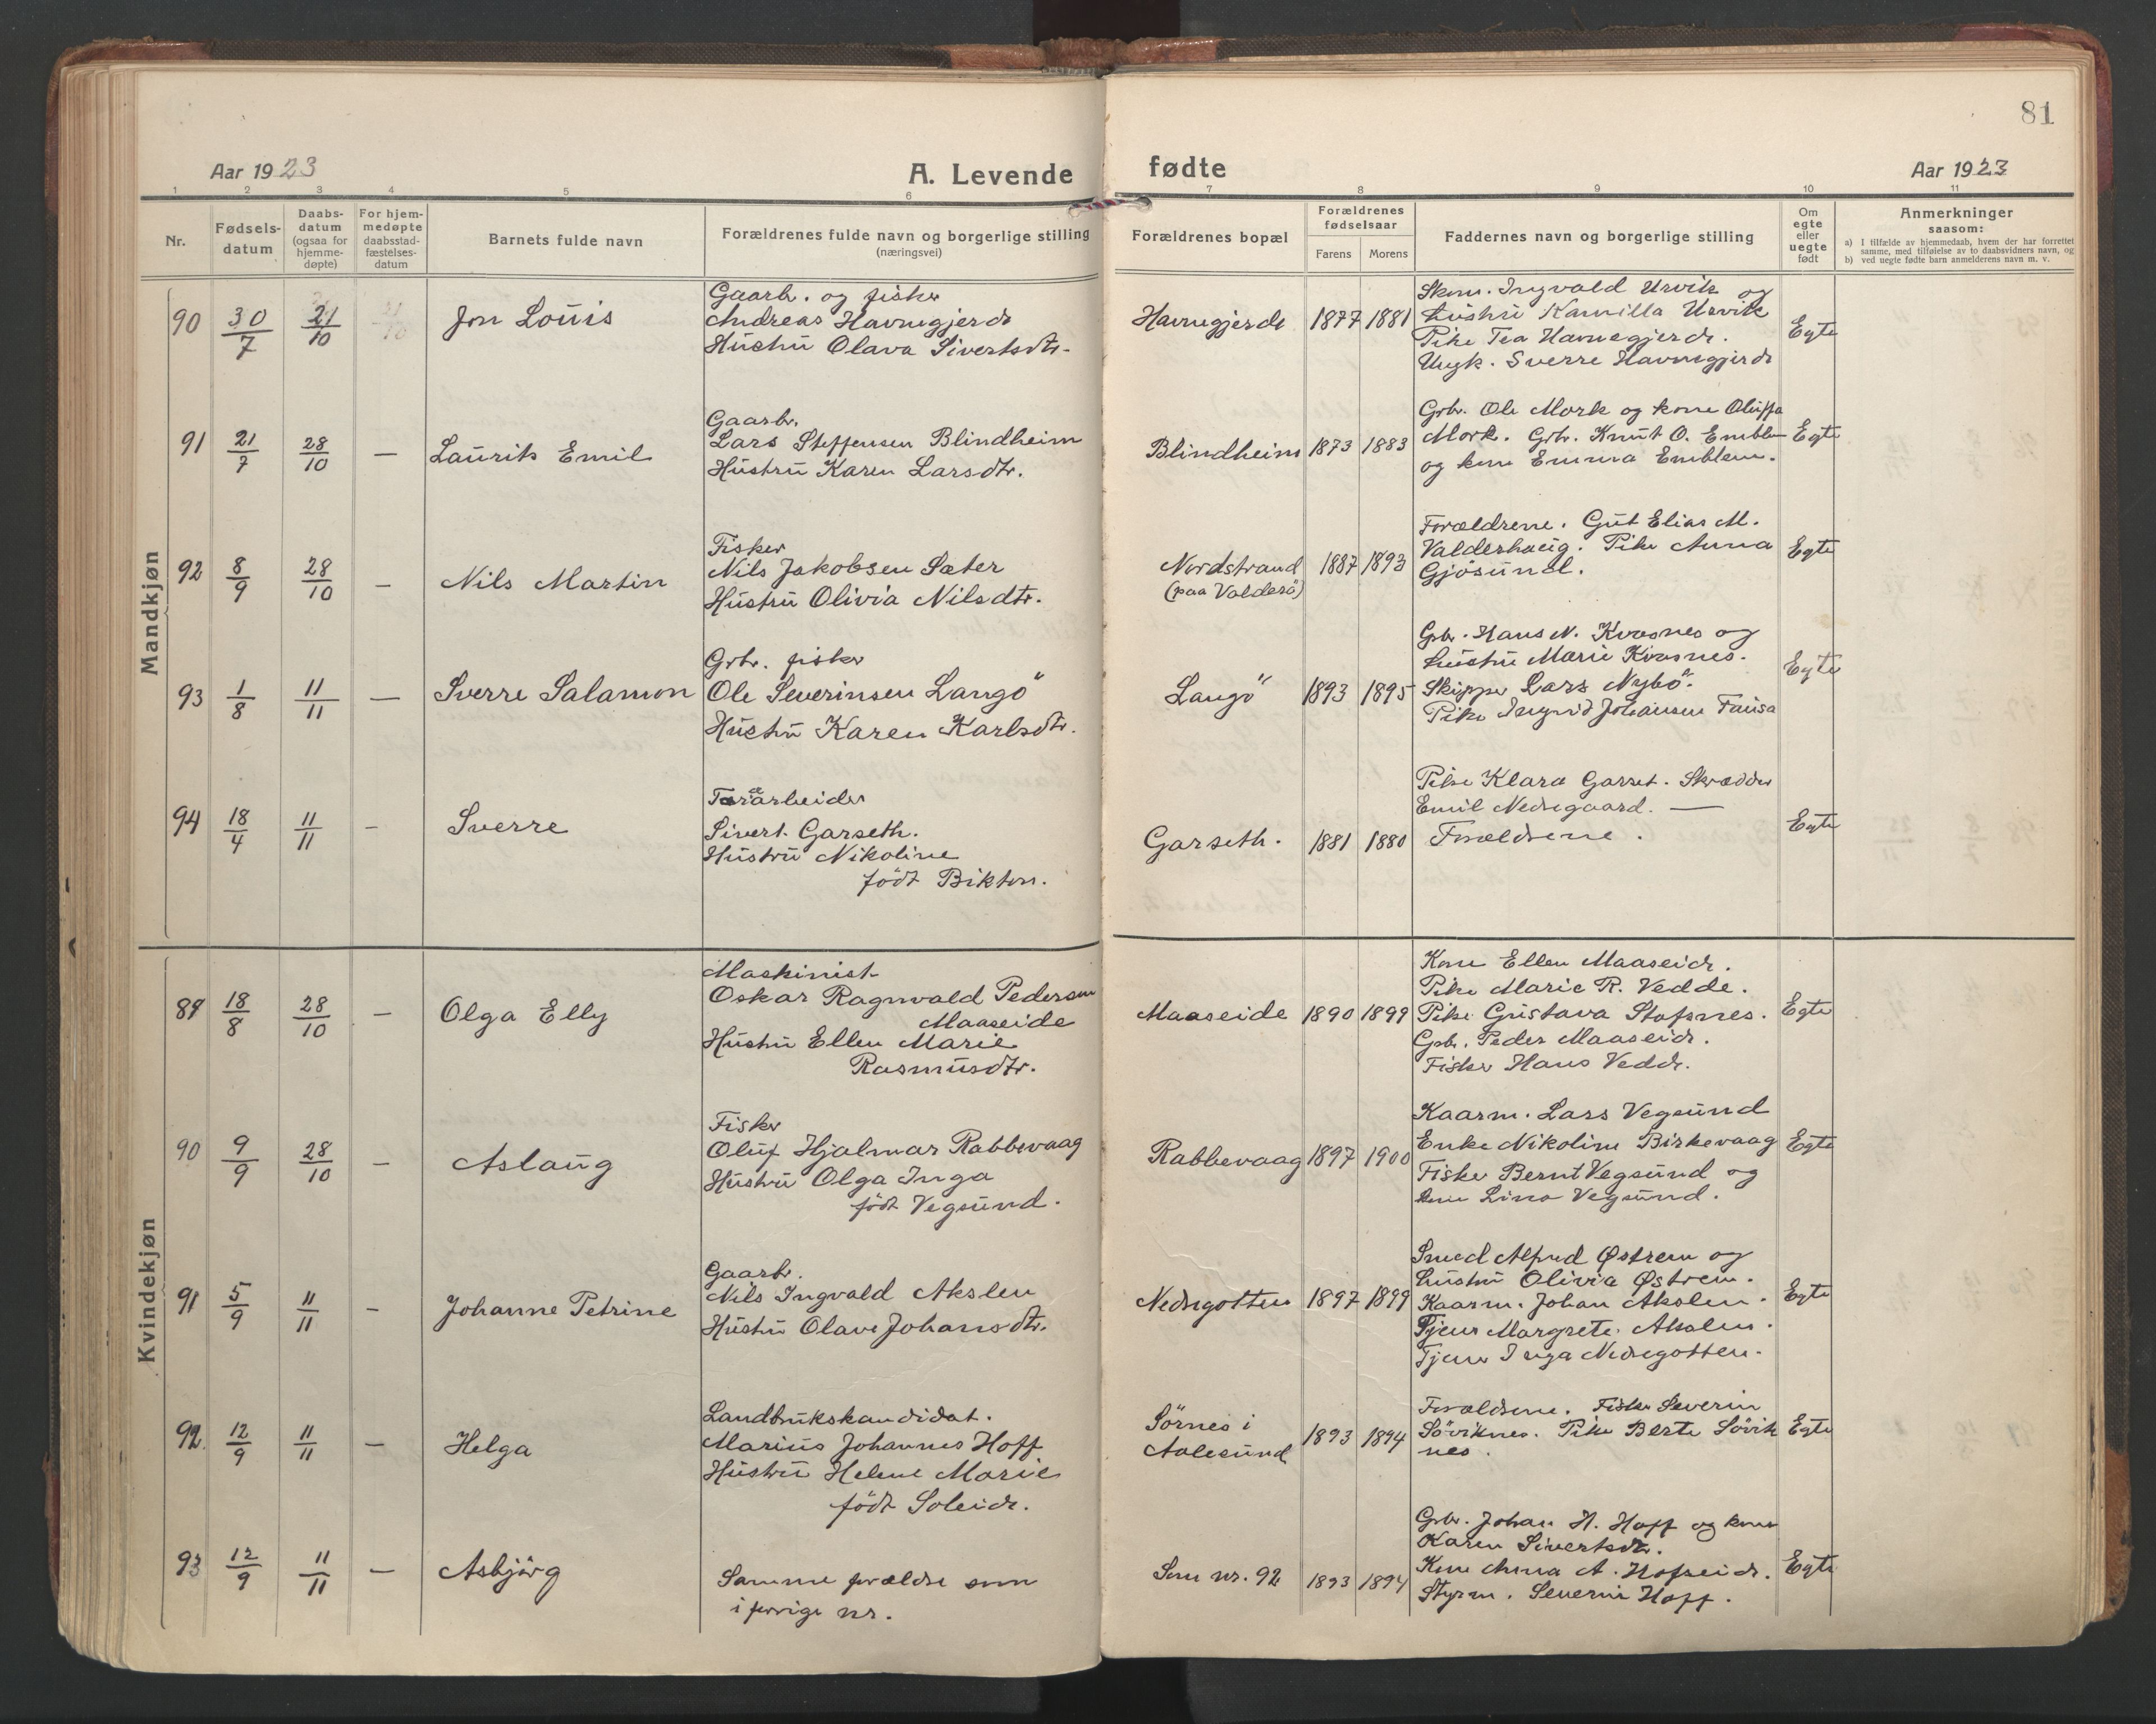 81
Aar 1923
A. Levende
fødte
Aar 1923
1 2 3 4 5 6 7 8 9 10 11
Nr.
Fødsels-
datum
Daabs-
datum
(ogsaa for
hjemme-
døpte)
For hjem-
medøpte
daabsstad-
fæstelses-
datum
Barnets fulde navn
Forældrenes fulde navn og borgerlige stilling
(næringsvei)
Forældrenes bopæl
Forældrenes
fødselsaar
Farens Morens
Faddernes navn og borgerlige stilling
Om
egte
eller
uegte
født
Anmerkninger
saasom:
a) I tilfælde av hjemmedaab, hvem der har forrettet
samme, med tilføielse av to daabsvidners navn, og
b) ved uegte fødte barn anmelderens navn m. v.
Mandkjøn
90 30/7 21/10 Jon Louis
Gaarb. og fisker
Andreas Havnegjerde
Hustru Olava Sivertsdtr.
Havnegjerde 1877 1881
Skom. Ingvald Urvik og
hustru Kamilla Urvik
Pike Tea Havnegjerde.
Ungk. Sverre Havnegjerde
Egte
91 21/7 28/10 — Laurits Emil
Gaarbr.
Lars Steffensen Blindheim
Hustru Karen Larsdtr.
Blindheim 1873 1883
Grbr. Ole Mork og kone Oluffa
Mork. Grbr. Knut O. Emblem
og kone Emma Emblem.
Egte
92 8/9 28/10 — Nils Martin
Fisker
Nils Jakobsen Sæter
Hustru Olivia Nilsdtr.
Nordstrand
(paa Valderö)
1887 1893
Forældrene. Gut Elias M.
Valderhaug. Pike Anna
Gjösund.
Egte
93 1/8 11/11 — Sverre Salamon
Grbr. fisker
Ole Severinsen Langö
Hustru Karen Karlsdtr.
Langö 1893 1895
Grbr. Hans N. Kvasnes og
hustru Marie Kvasnes.
Skipper Lars Nybö.
Pike Ingrid Johansen Fausa
Egte
94 18/4 11/11 - Sverre
Sivert Garseth.
Hustru Nikoline
födt Bikten.
Garseth. 1881 1880
Pike Klara Garset. Skrædder
Emil Nedregaard. —
Forældrene.
Egte
Kvindekjøn
89 18/8 28/10 - Olga Elly
Maskinist
Oskar Ragnvald Pedersen
Maaseide
Hustru Ellen Marie
Rasmusdtr.
Maaseide 1890 1899
Kone Ellen Maaseide.
Pike Marie R. Vedde.
Pike Gustava Stafsnes.
Grbr. Peder Maaseide.
Fisker Hans Vedde.
Egte
90 9/9 28/10 - Aslaug
Fisker
Oluf Hjalmar Rabbevaag
Hustru Olga Inga
födt Vegsund.
Rabbevaag 1897 1900
Kaarm. Lars Vegsund
Enke Nikoline Birkevaag
Fisker Bernt Vegsund og
kone Lina Vegsund.
Egte
91 5/9 11/11 - Johanne Petrine
Gaarbr.
Nils Ingvald Akslen
Hustru Olave Johansdtr.
Nedregotten 1897 1899
Smed Alfred Østrem og
hustru Olivia Østrem.
Kaarm. Johan Akslen.
Tjener Margrete Akslen.
Tjener Inga Nedregotten.
Egte
92. 12/9 11/11 — Helga
Landbrukskandidat.
Marius Johannes Hoff
Hustru Helene Marie
födt Soleide.
Sörnes i
Aalesund
1893 1894
Forældrene. Fisker Severin
Söviknes. Pike Berte Sövik
nes.
Egte
93 12/9 11/11 — Asbjörg
Samme forældre som
i forrige nr.
Som nr. 92 1893 1894
Grbr. Johan H. Hoff og kone
Karen Sivertsdtr.
Kone Anna A. Hofseide.
Styrm. Severin Hoff.
Egte